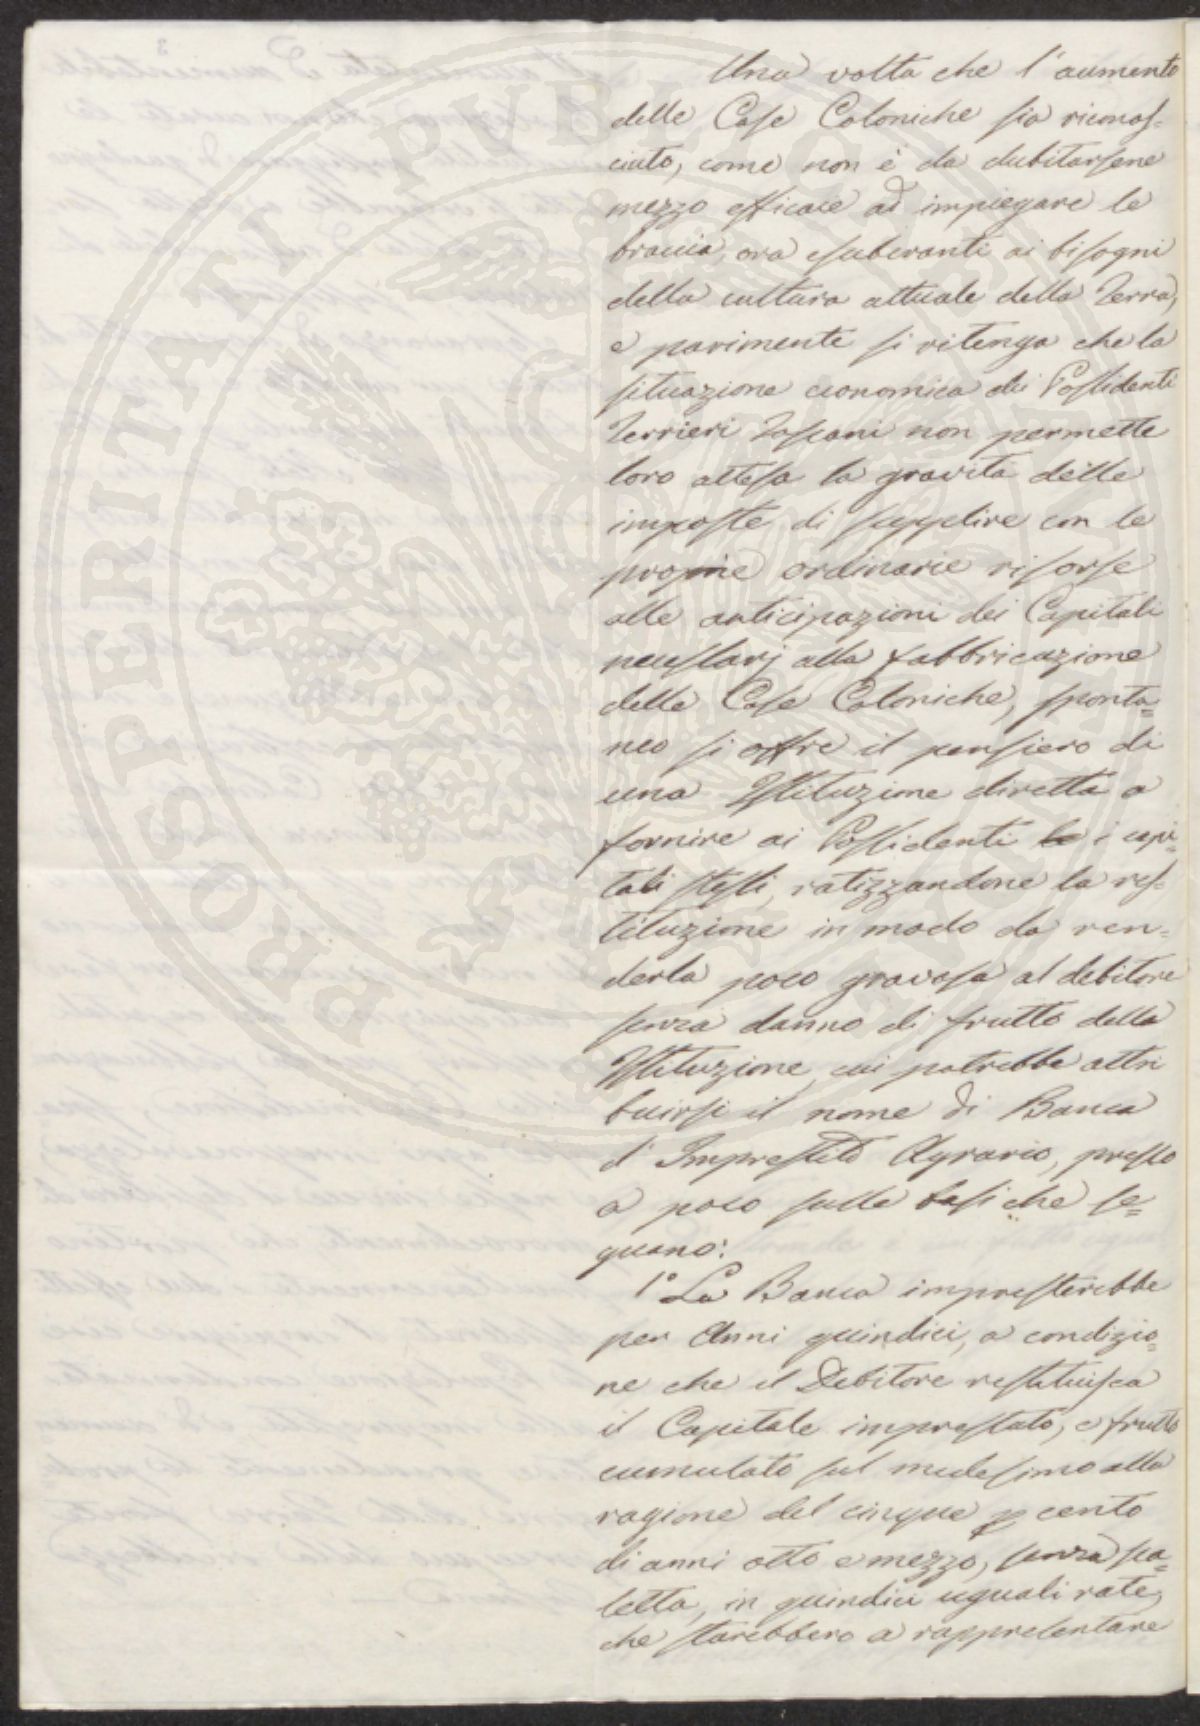 Una volta che l'aumento
delle Case Coloniche sia riconos-
ciuto, come non è da dubitarsene
mezzo efficace ad impiegare le
braccia, ora esuberanti ai bisogni
della cultura attuale della Terra,
e parimente si ritenga che la
situazione economica dei Possidenti
Terrieri Toscani non permette
loro attesa la gravità delle
imposte di supplire con le
proprie ordinarie risorse
alle anticipazioni dei Capitali
necessarj alla fabbricazione
delle Case Coloniche, sponta=
neo si offre il pensiero di
una Istituzione diretta a
fornire ai Possidenti i capi=
tali stessi, ratizzandone la res=
tituzione in modo da ren=
derla poco gravosa al debitore
senza danno di frutto della
Istituzione, cui potrebbe attri
buirsi il nome di Banca
d'Imprestito Agrario, presso
a poco sulle basi che se=
guano:
1° La Banca impresterebbe
per Anni quindici, a condizio=
ne che il Debitore restituisca
il Capitale imprestato, e frutto
cumulato sul medesimo alla
ragione del cinque p cento
di anni otto e mezzo, senza sca=
letta, in quindici uguali rate,
che starebbero a rappresentare
PROSPERITATI PUBLICAE